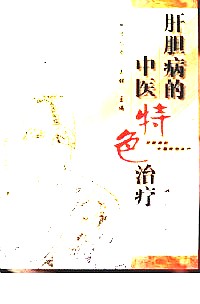 肝胆病的
中医特色治疗